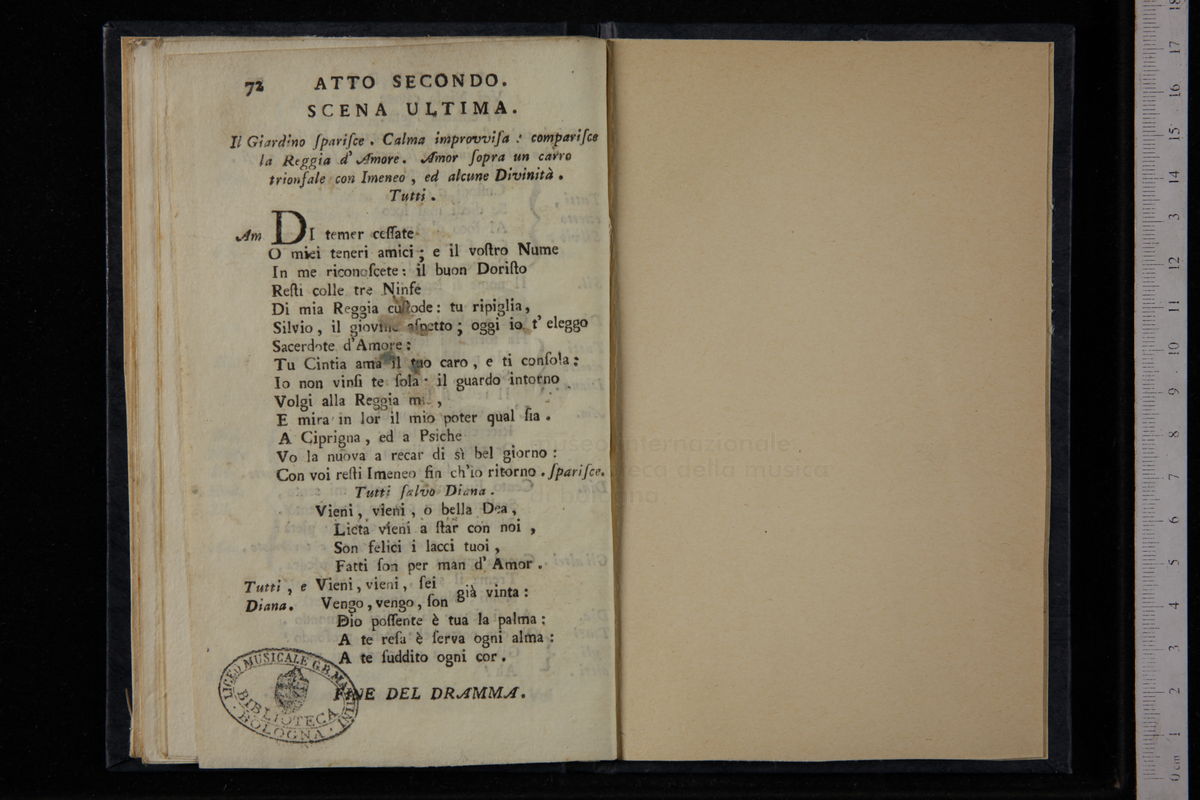 72 ATTO SECONDO.
SCENA ULTIMA.
Il Giardino ſpariſce. Calma improvviſa: compariſce
la Reggia d'Amore. Amor ſopra un carro
trionfale con Imeneo, ed alcune Divinità.
Tutti.
Am DI temer ceſſate
O miei teneri amici; e il voſtro Nume
In me riconoſcete: il buon Doriſto
Reſti colle tre Ninfe
Di mia Reggia cuſtode: tu ripiglia,
Silvio, il giovine aſpetto; oggi io t'eleggo
Sacerdote d'Amore:
Tu Cintia ama il tuo caro, e ti conſola:
Io non vinſi te ſola: il guardo intorno
Volgi alla Reggia
E mira in lor il mio poter qual ſia.
A Ciprigna, ed a Psiche
Vo la nuova a recar di sì bel giorno:
Con voi reſti Imeneo fin ch'io ritorno. ſpariſce.
Tutti ſalvo Diana.
Vieni, vieni, o bella Dea,
Lieta vieni a ſtar con noi,
Son felici i lacci tuoi,
Fatti ſon per man d'Amor.
Tutti, e Vieni, vieni, ſei
già vinta:
Diana. Vengo, vengo, ſon
Dio poſſente è tua la palma:
A te reſa è ſerva ogni alma:
A te ſuddito ogni cor.
FINE DEL DRAMMA.
LICEO MUSICALE G.B. MARTINI
BIBLIOTECA
BOLOGNA
museo internazionale
biblioteca della musica
di bologna
0 cm 1 2 3 4 5 6 7 8 9 10 11 12 13 14 15 16 17 18